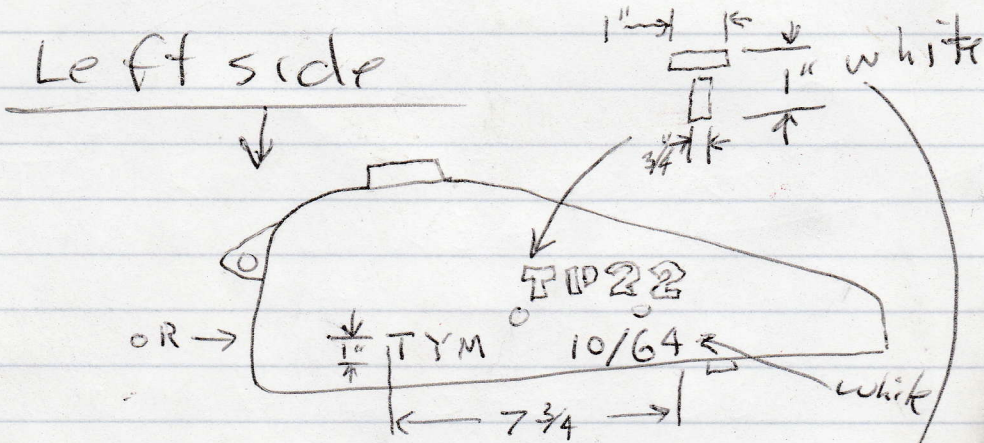 Left side
1"
1" white
3/4"
TP22
OR → 1" TYM 10/64
white
7 3/4